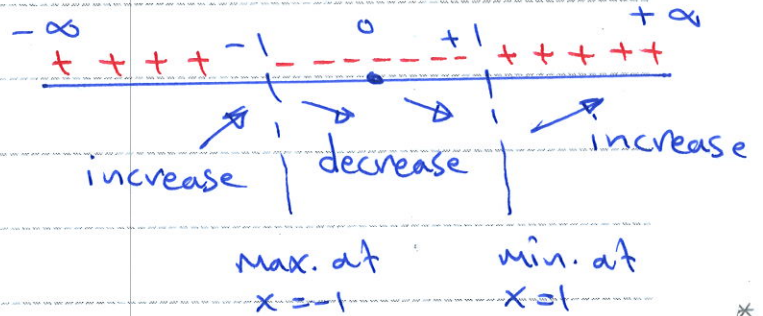 -∞ 0 +∞
+ + + + -1 - - - - - - - - +1 + + + + +
increase decrease increase
Max. at min. at
x = -1 x = 1
*